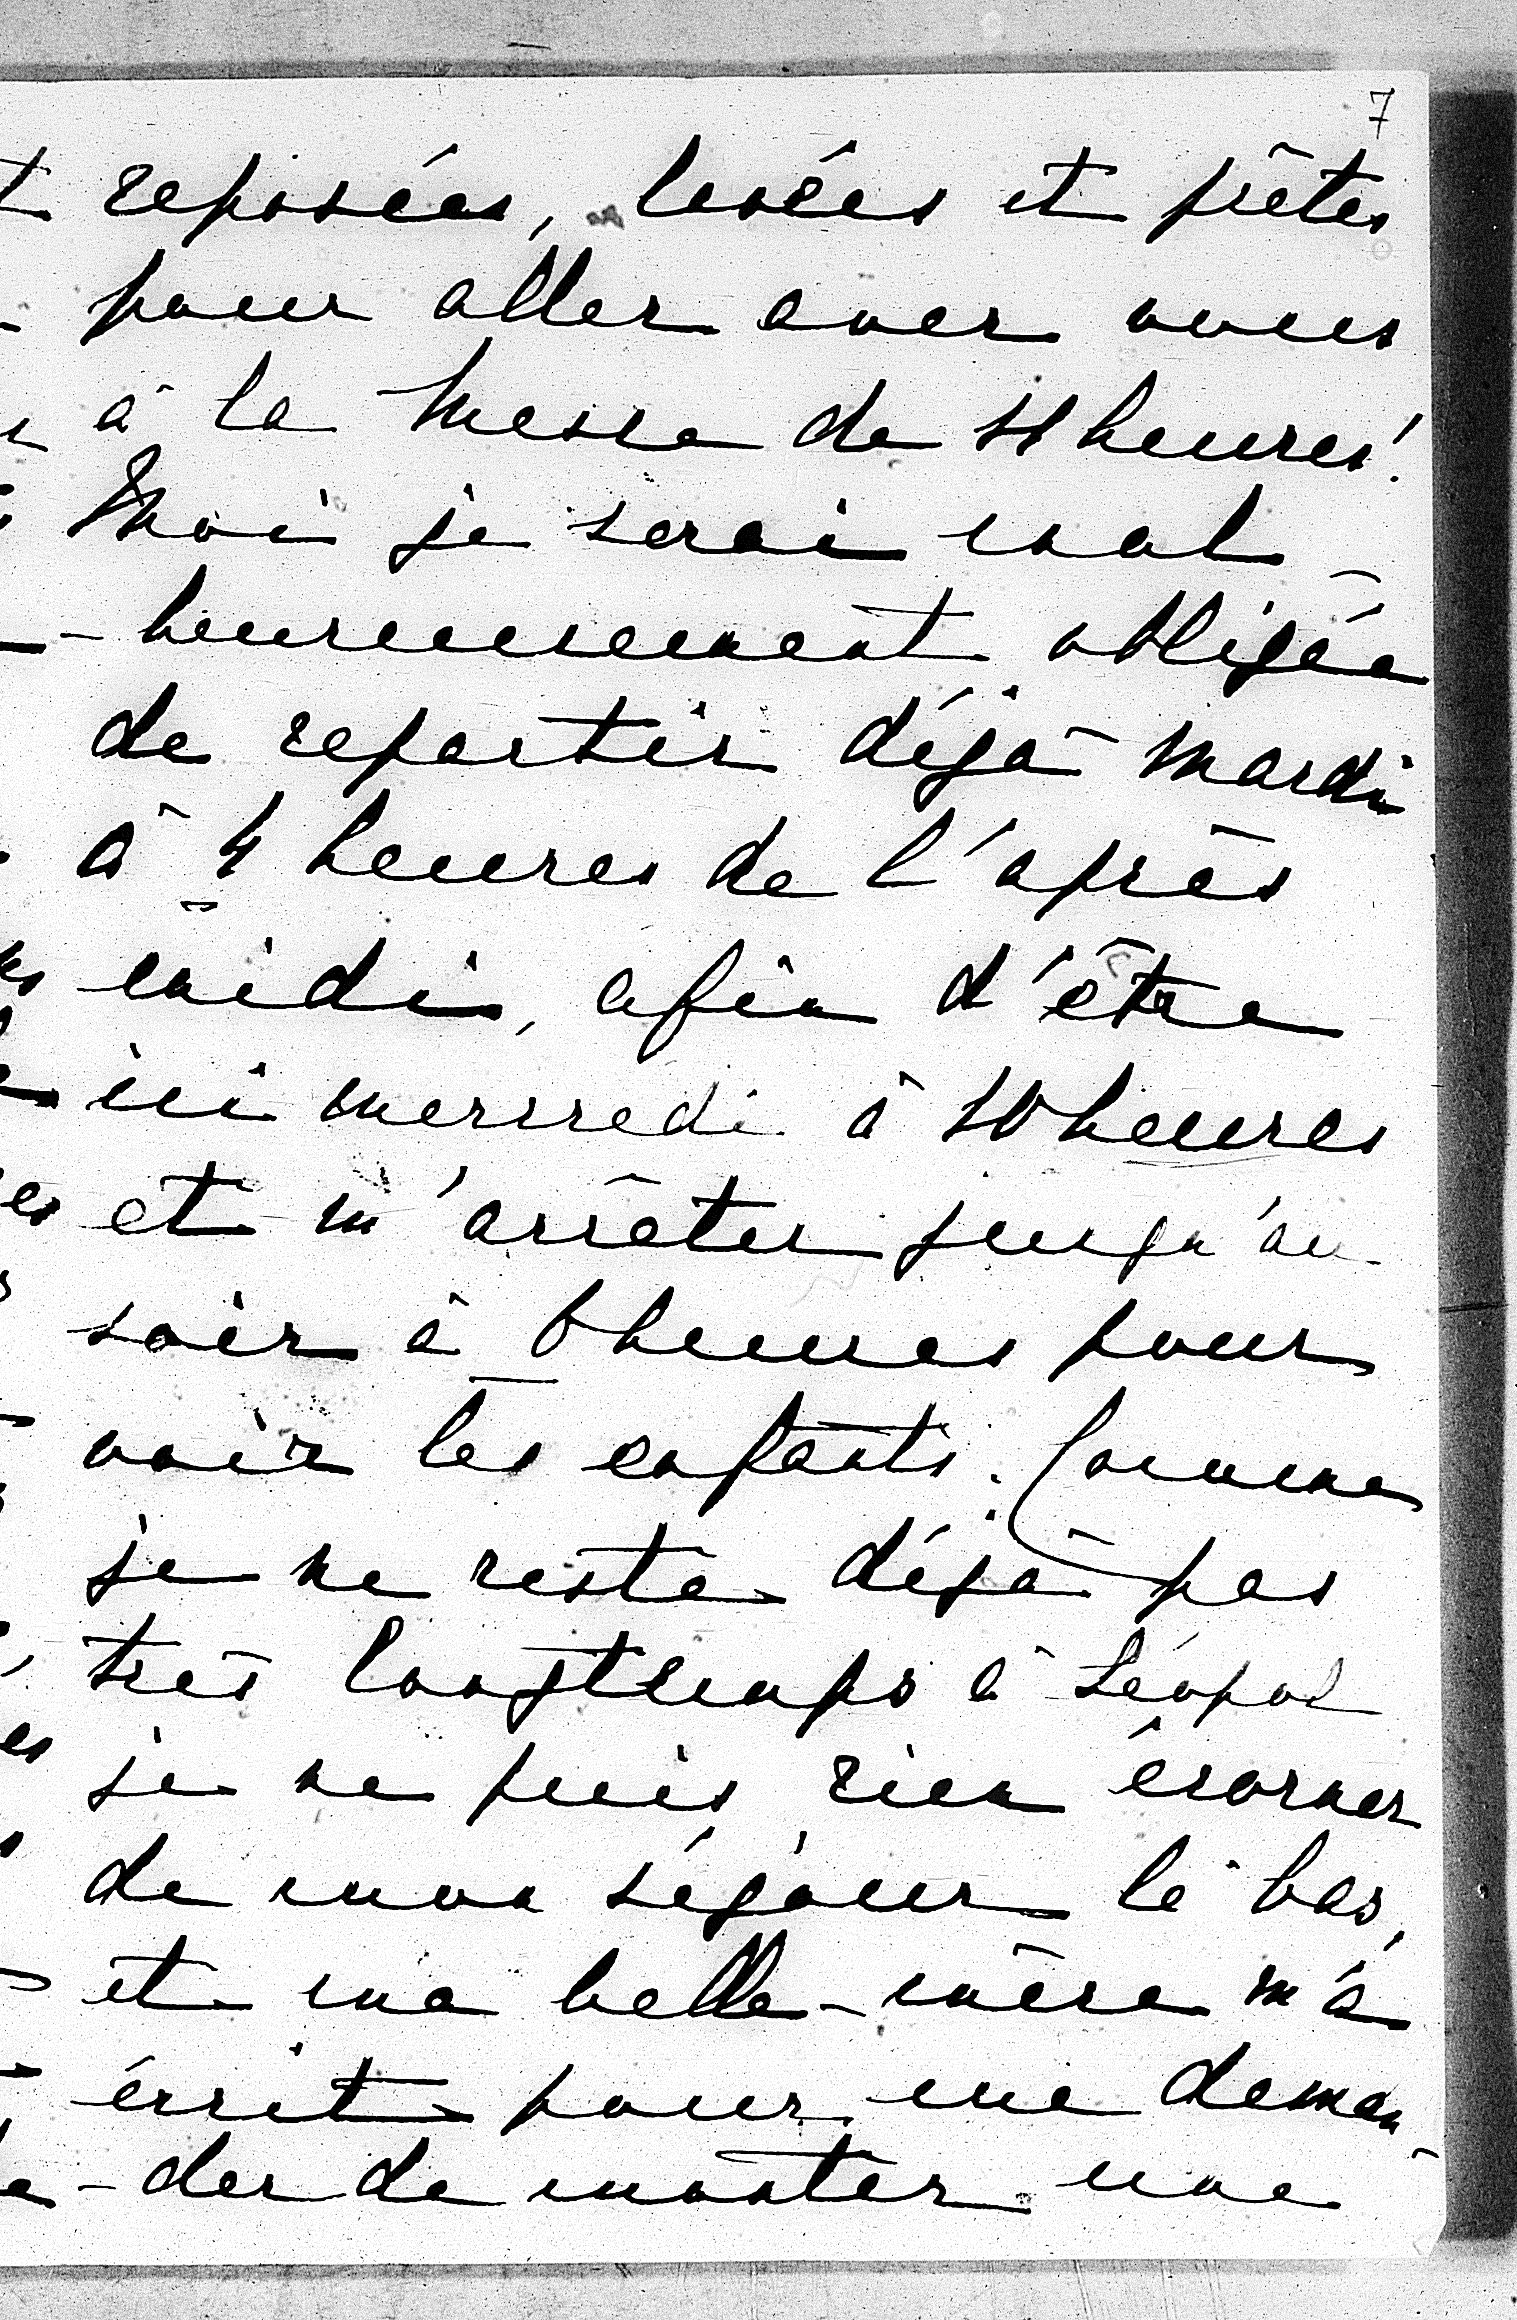 7
reposées, levées et prêtes
pour aller avec vous
à la Messe de 11 heures!
Moi je serai mal
-heureusement obligée
de repartir déjà Mardi
à 4 heures de l'après
midi, afin d'être
ici mercredi à 10 heures
et m'arrêter jusqu'au
soir à 6 heures pour
voir les enfants. Comme
je ne reste déjà pas
très longtemps à Léopol
je ne puis rien écorner
de mon séjour là bas,
et ma belle-mère m'a
écrit pour me deman
-der de monter une